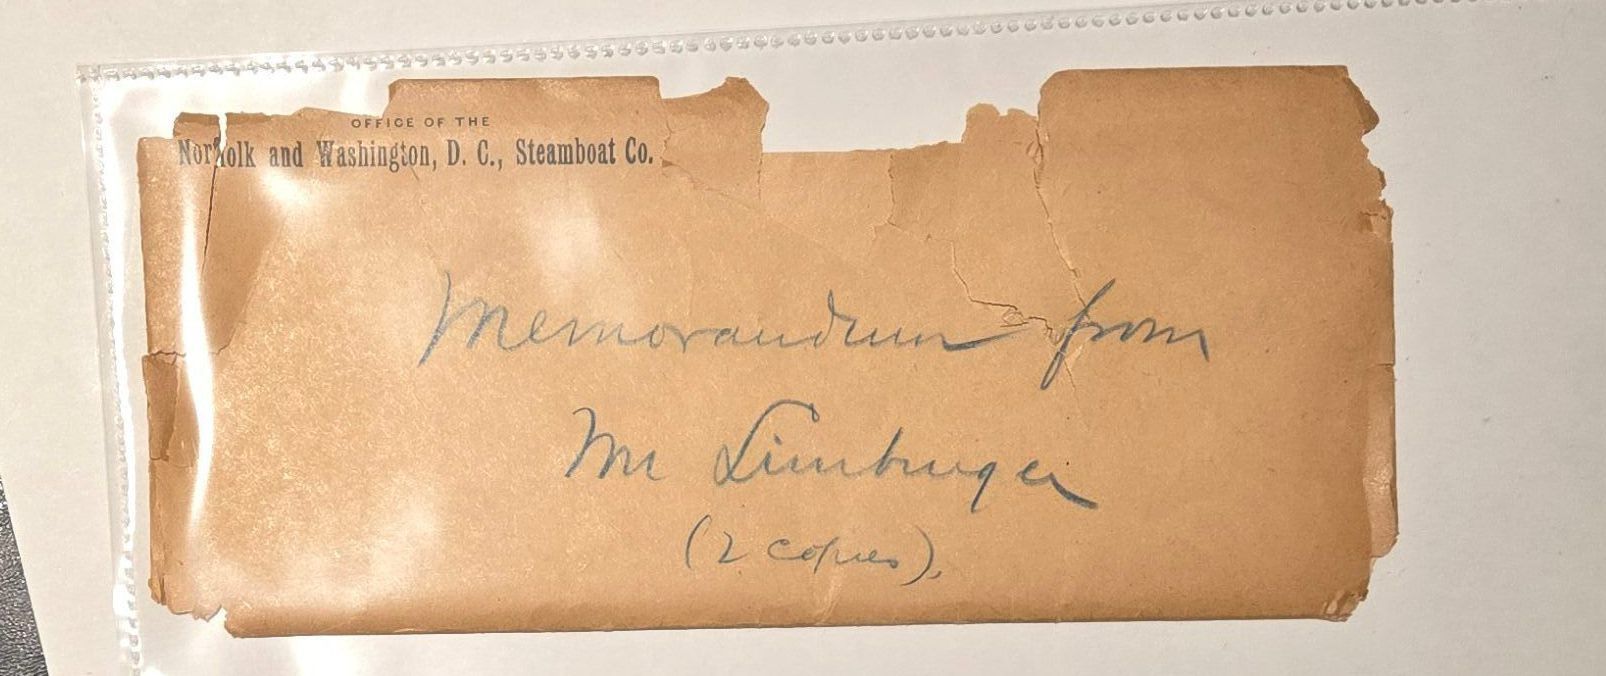 OFFICE OF THE
Norfolk and Washington, D. C., Steamboat Co.
Memorandum from
Mr Limburger
(2 copies).